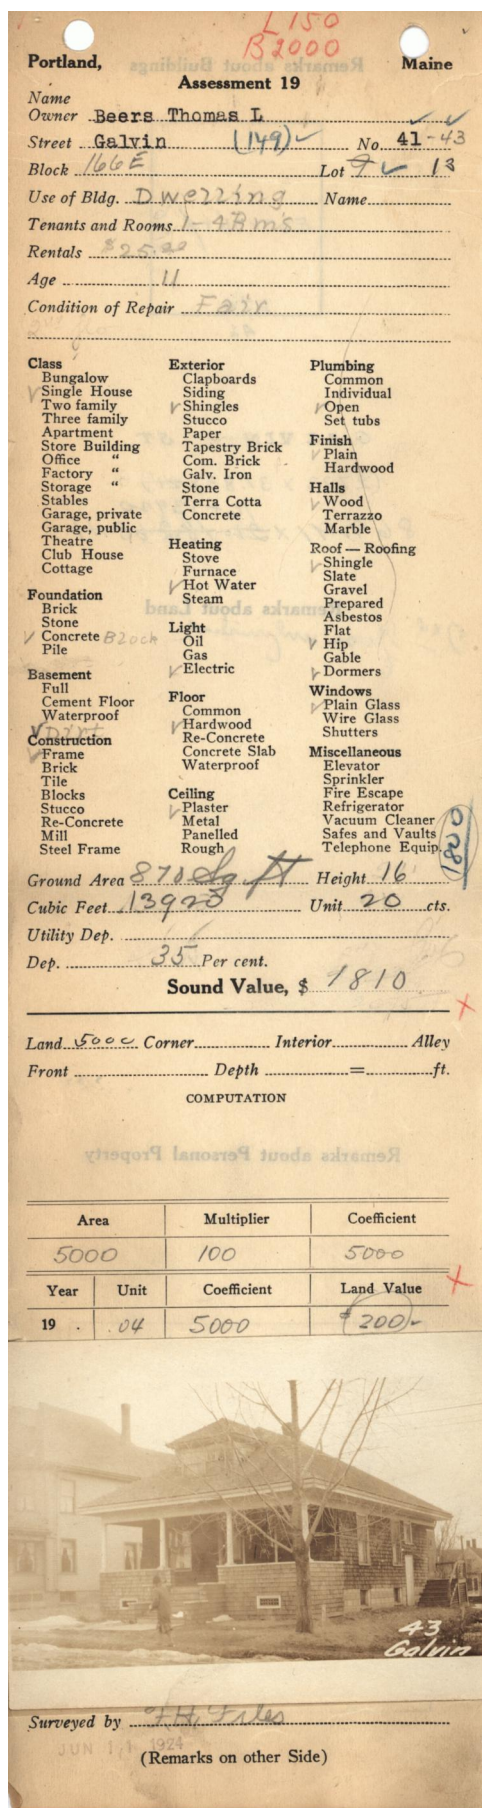 L 150
B 2000
Portland, Maine
Assessment 19
Name
Owner Beers Thomas L
Street Galvin (149) No. 41-43
Block 166E Lot 9 13
Use of Bldg. Dwelling Name
Tenants and Rooms 1-4 Rms
Rentals $25.00
Age 11
Condition of Repair Fair
Class
Bungalow
Single House
Two family
Three family
Apartment
Store Building
Office "
Factory "
Storage "
Stables
Garage, private
Garage, public
Theatre
Club House
Cottage
Foundation
Brick
Stone
Concrete Block
Pile
Basement
Full
Cement Floor
Waterproof
Dirt
Construction
Frame
Brick
Tile
Blocks
Stucco
Re-Concrete
Mill
Steel Frame
Exterior
Clapboards
Siding
Shingles
Stucco
Paper
Tapestry Brick
Com. Brick
Galv. Iron
Stone
Terra Cotta
Concrete
Heating
Stove
Furnace
Hot Water
Steam
Light
Oil
Gas
Electric
Floor
Common
Hardwood
Re-Concrete
Concrete Slab
Waterproof
Ceiling
Plaster
Metal
Panelled
Rough
Plumbing
Common
Individual
Open
Set tubs
Finish
Plain
Hardwood
Halls
Wood
Terrazzo
Marble
Roof — Roofing
Shingle
Slate
Gravel
Prepared
Asbestos
Flat
Hip
Gable
Dormers
Windows
Plain Glass
Wire Glass
Shutters
Miscellaneous
Elevator
Sprinkler
Fire Escape
Refrigerator
Vacuum Cleaner
Safes and Vaults
Telephone Equip.
1800
Ground Area 870 Sq ft Height 16
Cubic Feet 13920 Unit 20 cts.
Utility Dep.
Dep. 35 Per cent.
Sound Value, $ 1810
Land 5000 Corner Interior Alley
Front Depth = ft.
COMPUTATION
Remarks about Personal Property
Area Multiplier Coefficient
5000 100 5000
Year Unit Coefficient Land Value
19 . .04 5000 $200
43
Galvin
Surveyed by F.H. Files
JUN 11 1924
(Remarks on other Side)